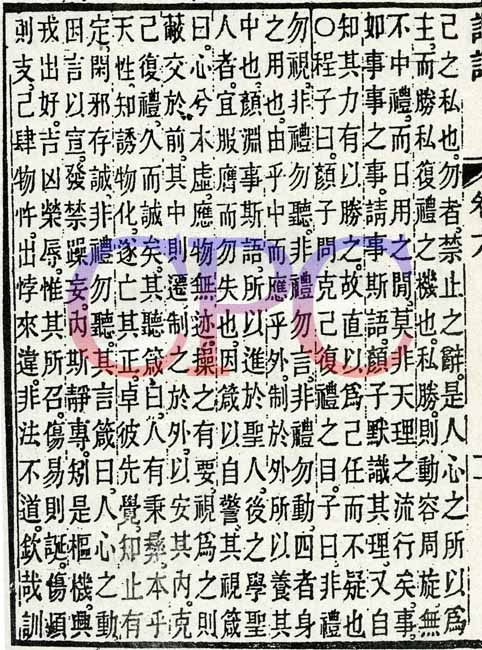 己之私也勿者禁止之辭是人心之所以為
主而勝私復禮之機也私勝則動容周旋無
不中禮而日用之閒莫非天理之流行矣事
如事事之事請事斯語顏子默識其理又自
知其力有以勝之故直以為己任而不疑也
○程子曰顏子問克己復禮之目子曰非禮
勿視非禮勿聽非禮勿言非禮勿動四者身
之用也由乎中而應乎外制於外所以養其
中也顏淵事斯語所以進於聖人後之學聖
人者宜服膺而勿失也因箴以自警其視箴
曰心兮本虛應物無迹操之有要視為之則
蔽交於前其中則遷制之於外以安其內克
己復禮久而誠矣其聽箴曰人有秉彝本乎
天性知誘物化遂亡其正卓彼先覺知止有
定閑邪存誠非禮勿聽其言箴曰人心之動
因言以宣發禁躁妄內斯靜專矧是樞機興
戎出好吉凶榮辱惟其所召傷易則誕傷煩
則支己肆物忤出悖來違非法不道欽哉訓
CPC